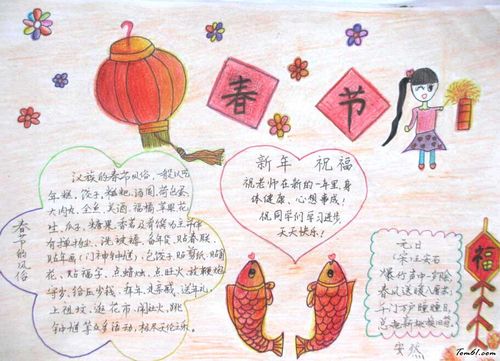 春 节
春节的风俗
汉族的春节习俗,一般以吃
年糕、饺子、糍粑、汤圆、荷包蛋、
大肉丸、全鱼、美酒、福橘、苹果、花
生、瓜子、糖果、香茗及肴馔为主并伴
有掸扬尘、洗被褥、备年货、贴春联、
贴年画、门神钟馗、包饺子、贴剪纸、贴窗
花、贴福字、点蜡烛、点旺火、放鞭炮、
守岁、给压岁钱、拜年、走亲戚、送年礼、
上祖坟、逛花市、闹社火、跳
钟馗等众多活动,极尽天伦之乐。
新年 祝福
祝老师在新的一年里,身
体健康、心想事成!
祝同学们学习进步,
天天快乐!
元日
宋·王安石
爆竹声中一岁除
春风送暖入屠苏
千门万户曈曈日
总把新桃换旧符
安然
福
Tom61.com